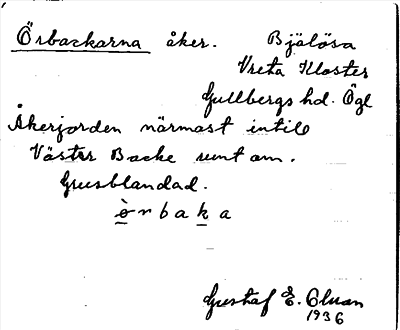 Örbackarna åker. Bjälösa
Vreta Kloster
Gullbergs hd. Ögl
Åkerjorden närmast intill
Väster Backe runt om.
Grusblandad.
ö̀rbaka
Gustaf E.
1936